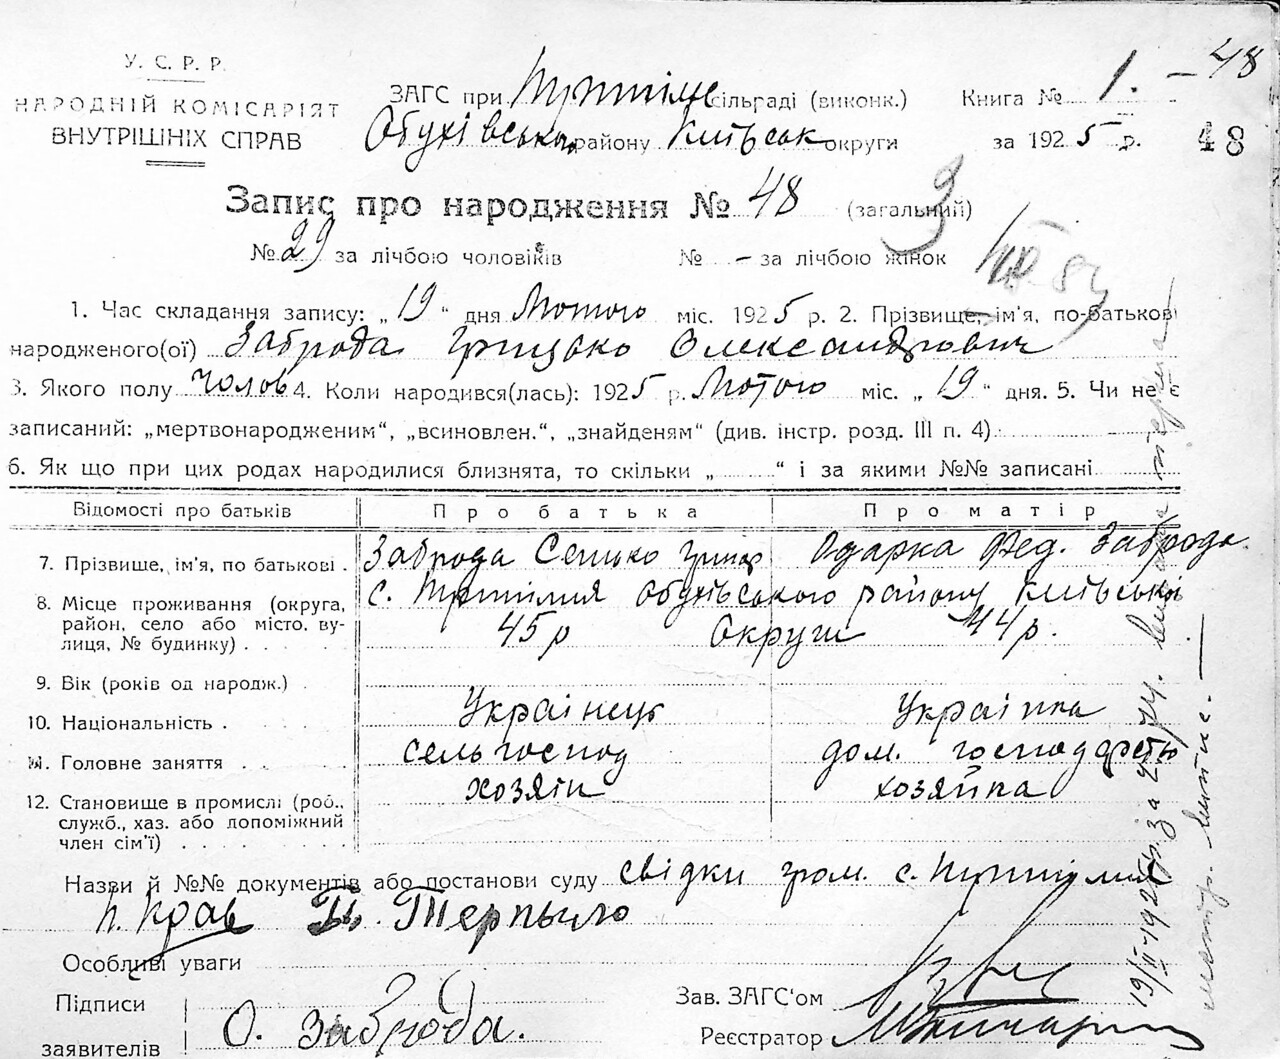 У. С. Р. Р.
НАРОДНІЙ КОМІСАРІЯТ
ВНУТРІШНІХ СПРАВ
ЗАГС при сільраді (виконк.) Книга № 1. — 48
Обухівського району Київськ округи за 1925 р. 48
Запис про народження № 48 (загальний)
№ 29 за лічбою чоловіків № - за лічбою жінок
1. Час складання запису: „19“ дня Лютого міс. 1925 р. 2. Прізвище, ім'я, по-батькові
народженого(ої) Заброда Грицько Олександрович
3. Якого полу чолов 4. Коли народився(лась): 1925 р. Лютого міс. „19“ дня. 5. Чи не є
записаний: „мертвонародженим“, „всиновлен.“, „знайденям“ (див. інстр. розд. III п. 4)
6. Як що при цих родах народилися близнята, то скільки „ “ і за якими №№ записані
Відомості про батьків Про батька Про матір
7. Прізвище, ім'я, по батькові . Заброда Сенько Григ Одарка Фед. Заброда
8. Місце проживання (округа, с. Обухівського району Київської
район, село або місто, ву- 45 р Округи 44 р.
лиця, № будинку) . . . . .
9. Вік (років од народж.) .
10. Національність . Українець Українка
11. Головне заняття . . . сельгоспод дом. господарство
12. Становище в промислі (роб., хозяін хозяйка
служб., хаз. або допоміжний
член сім'ї) . . . . . . .
Назви й №№ документів або постанови суду свідки гром. с.
П. Крав Терпыло
Особливі уваги
Підписи
заявителів О. Заброда.
Зав. ЗАГС'ом
Реєстратор